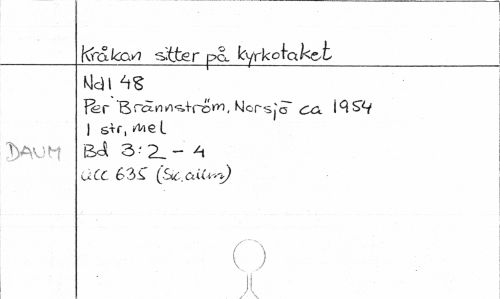 Kråkan sitter på kyrkotaket
Ndl 48
Per Brännström, Norsjö ca 1954
1 str, mel
DAUM Bd 3:2 - 4
acc 635